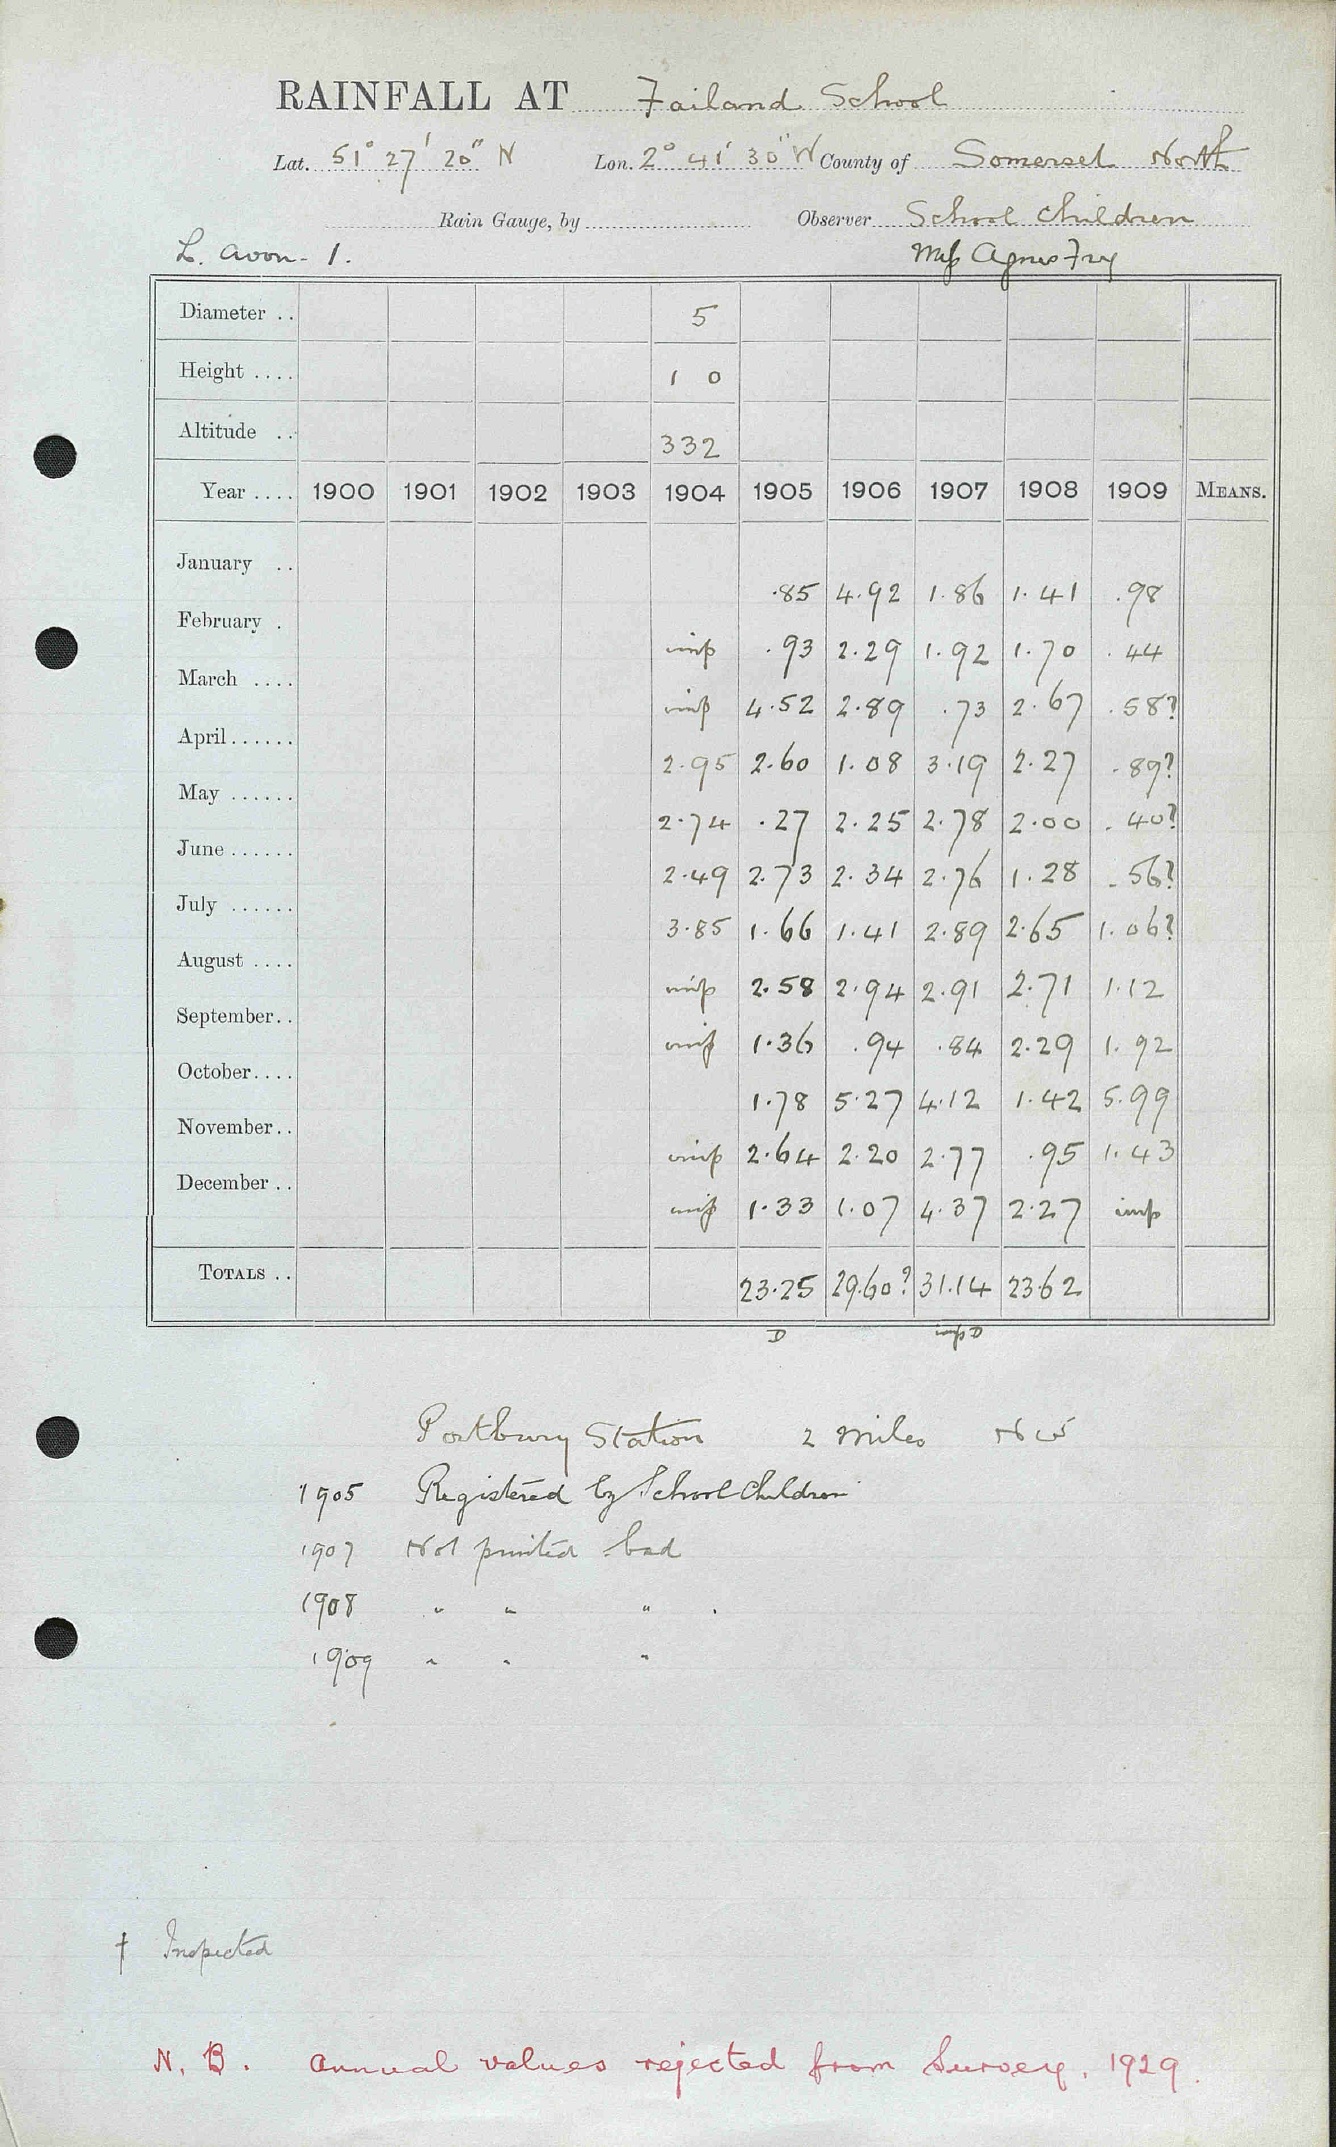 RAINFALL AT Failand School
Lat. 51° 27' 20" N Lon. 2° 41' 30" W County of Somerset North
Rain Gauge, by Observer School Children
L. Avon - 1. Miss Agnes Fry
Diameter .. 5
Height .... 1 0
Altitude .. 332
Year .... 1900 1901 1902 1903 1904 1905 1906 1907 1908 1909 MEANS.
January .. .85 4.92 1.86 1.41 .98
February . imp .93 2.29 1.92 1.70 .44
March .... imp 4.52 2.89 .73 2.67 .58?
April ...... 2.95 2.60 1.08 3.19 2.27 .89?
May ...... 2.74 .27 2.25 2.78 2.00 .40?
June ...... 2.49 2.73 2.34 2.76 1.28 .56?
July ...... 3.85 1.66 1.41 2.89 2.65 1.06?
August .... imp 2.58 2.94 2.91 2.71 1.12
September .. imp 1.36 .94 .84 2.29 1.92
October .... 1.78 5.27 4.12 1.42 5.99
November .. imp 2.64 2.20 2.77 .95 1.43
December .. imp 1.33 1.07 4.37 2.27 imp
TOTALS .. 23.25 29.60? 31.14 23.62
D imp D
Portbury Station 2 miles NW
1905 Registered by School Children
1907 Not printed bad
1908 " " " .
1909 " " "
† Inspected
N. B. Annual values rejected from Survey. 1929.